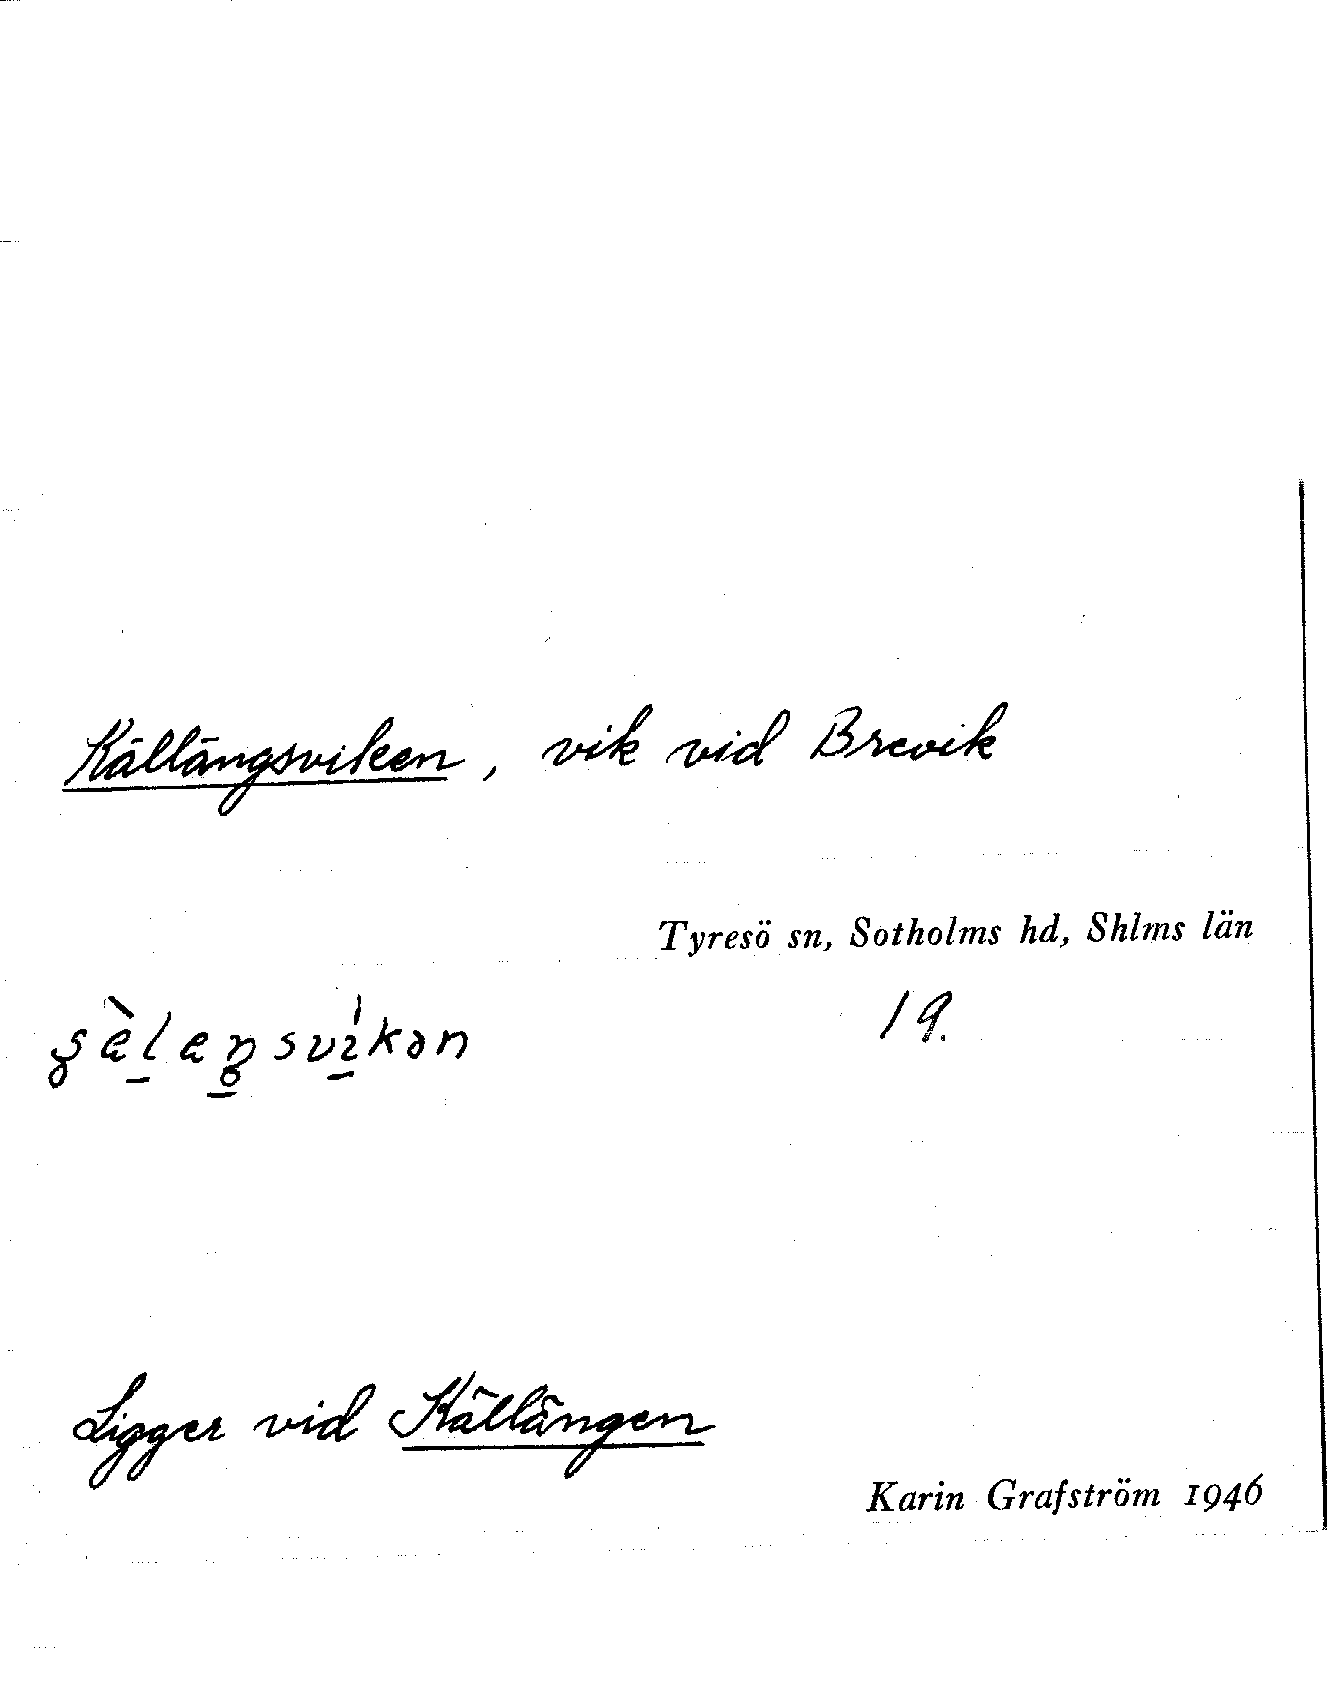 Källängsviken, vik vid Brevik
Tyresö sn, Sotholms hd, Shlms län
19.
Ligger vid Källängen
Karin Grafström 1946